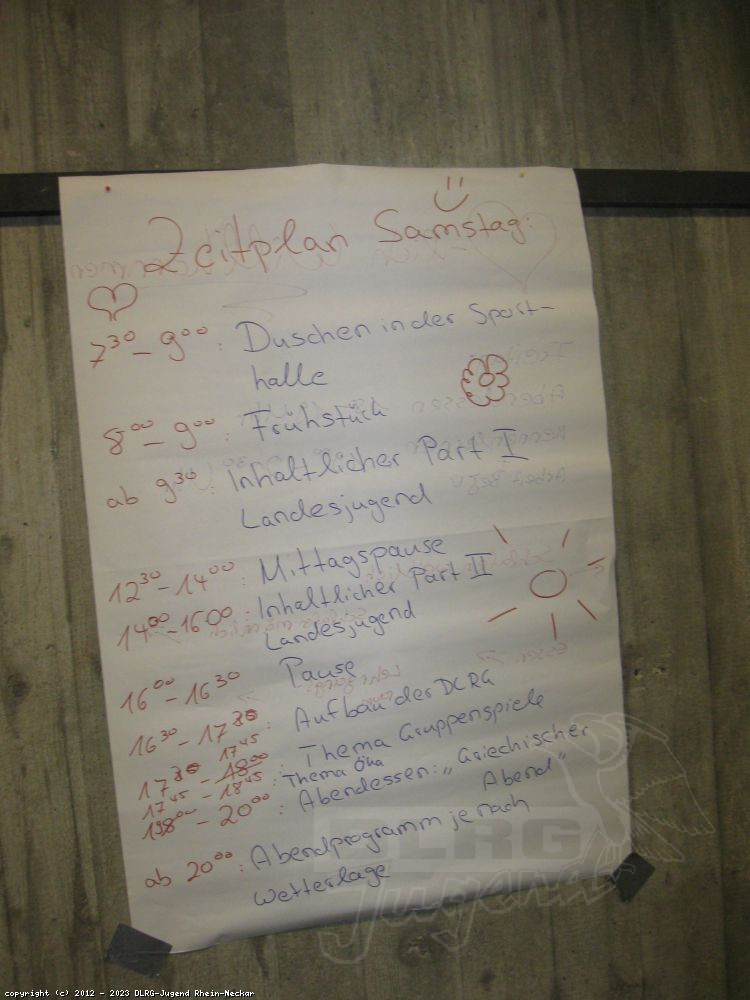 Zeitplan Samstag:
7³⁰ – 9⁰⁰ : Duschen in der Sport-
halle
8⁰⁰ – 9⁰⁰ : Frühstück
ab 9³⁰ : Inhaltlicher Part I
Landesjugend
12³⁰ – 14⁰⁰ : Mittagspause
14⁰⁰ – 16⁰⁰ : Inhaltlicher Part II
Landesjugend
16⁰⁰ – 16³⁰ Pause
16³⁰ – 17³⁰ : Aufbau der DLRG
17⁴⁵
17³⁰ – 18⁰⁰ : Thema Gruppenspiele
17⁴⁵ – 18⁴⁵ : Thema Öka
– 20⁰⁰ : Abendessen: „Griechischer
Abend"
ab 20⁰⁰ : Abendprogramm je nach
Wetterlage
DLRG
Jugend
copyright (c) 2012 - 2023 DLRG-Jugend Rhein-Neckar